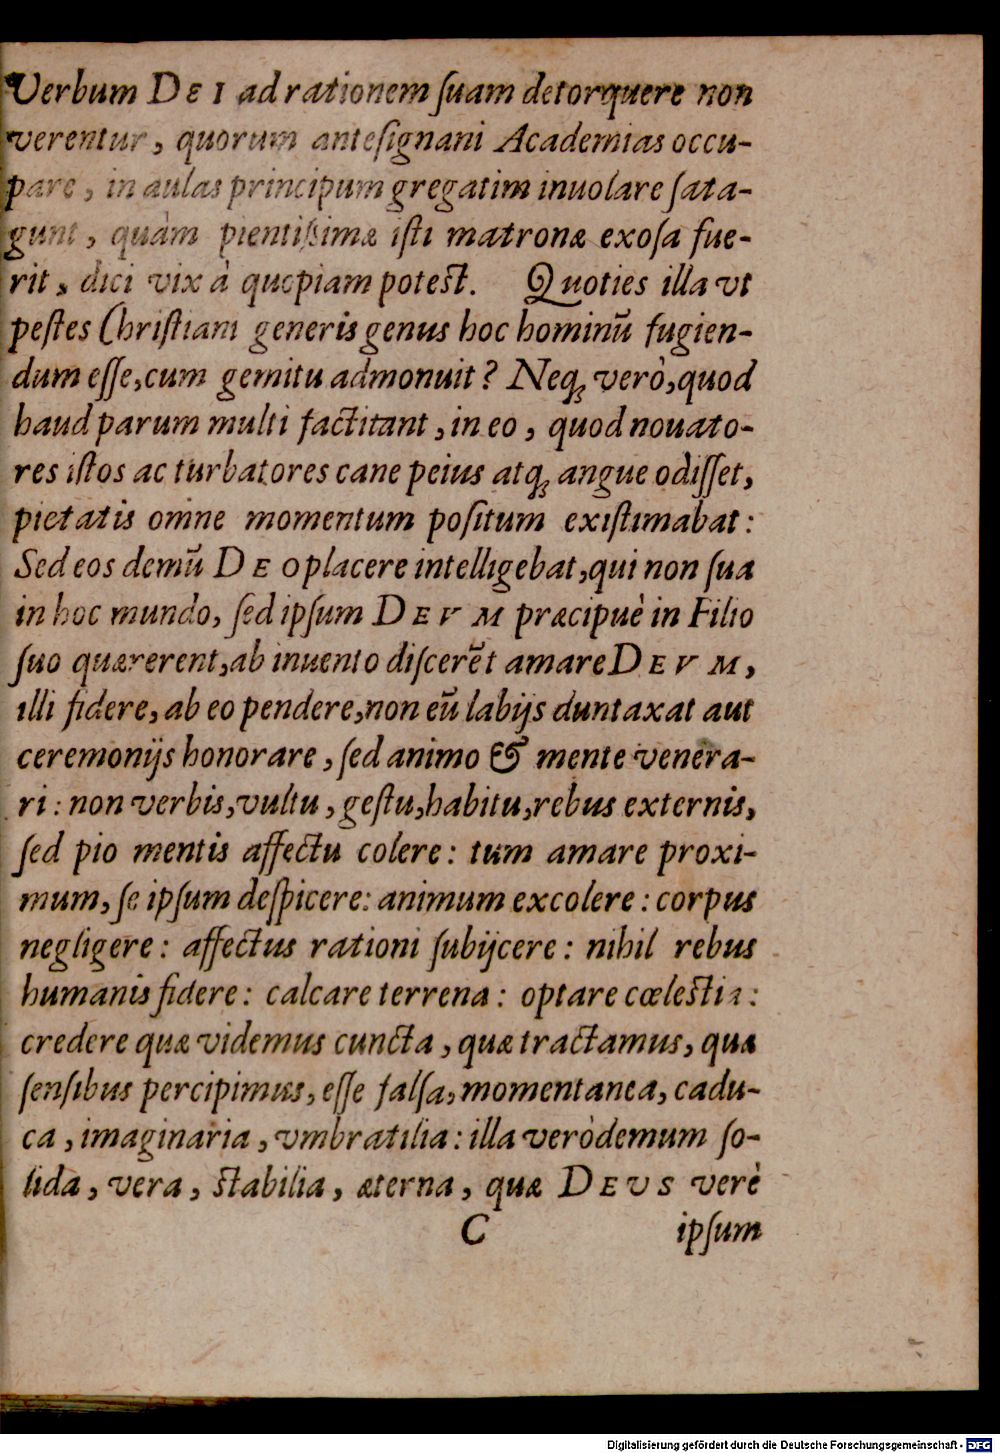 Verbum DEI ad rationem ſuam detorquere non
verentur, quorum anteſignani Academias occu-
pare, in aulas principum gregatim inuolare ſata-
gunt, quàm pientißimæ iſti matronæ exoſa fue-
rit, dici vix à quopiam poteſt. Quoties illa vt
peſtes Chriſtiani generis genus hoc hominū fugien-
dum eſſe, cum gemitu admonuit? Neqꝫ verò, quod
haud parum multi factitant, in eo, quod nouato-
res iſtos ac turbatores cane peius atqꝫ angue odiſſet,
pietatis omne momentum poſitum exiſtimabat:
Sed eos demū DEO placere intelligebat, qui non ſua
in hoc mundo, ſed ipſum DEVM præcipuè in Filio
ſuo quærerent, ab inuento diſcerēt amare DEVM,
illi fidere, ab eo pendere, non eū labijs duntaxat aut
ceremonijs honorare, ſed animo & mente venera-
ri: non verbis, vultu, geſtu, habitu, rebus externis,
ſed pio mentis affectu colere: tum amare proxi-
mum, ſe ipſum deſpicere: animum excolere: corpus
negligere: affectus rationi ſubijcere: nihil rebus
humanis fidere: calcare terrena: optare cœleſtia:
credere quæ videmus cuncta, quæ tractamus, quæ
ſenſibus percipimus, eſſe falſa, momentanea, cadu-
ca, imaginaria, vmbratilia: illa verò demum ſo-
lida, vera, ſtabilia, æterna, quæ DEUS verè
C ipſum
Digitalisierung gefördert durch die Deutsche Forschungsgemeinschaft - DFG